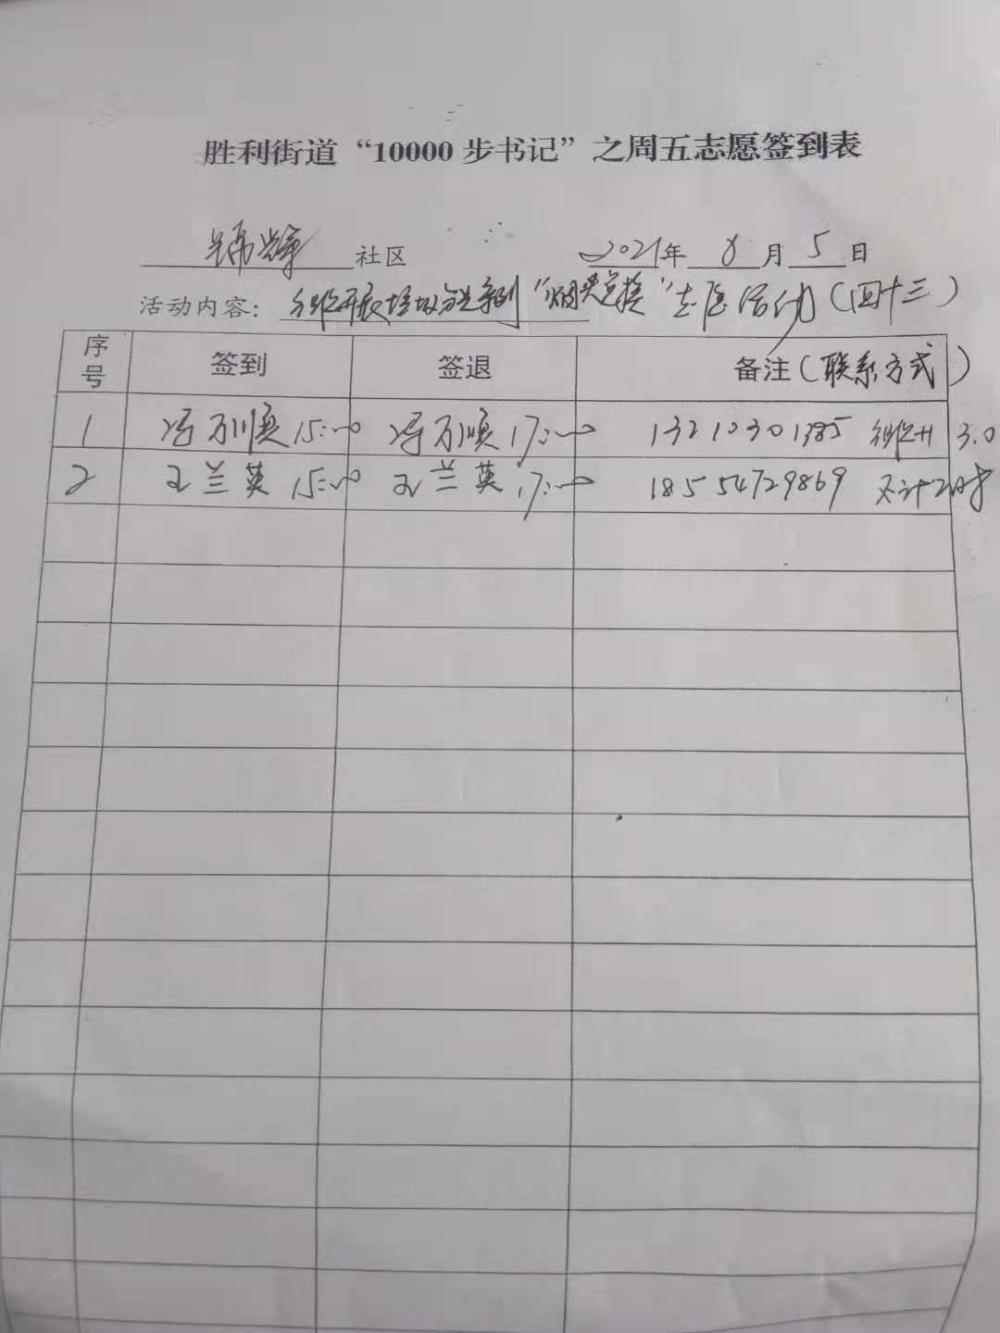 胜利街道“10000步书记”之周五志愿签到表
社区 2021年 8月5日
活动内容： 开展垃圾分类系列“烟头兑换”志愿活动（四十三）
序号 签到 签退 备注（联系方式）
1 冯万顺 15:00 冯万顺 17:00 13210301385
2 王兰英 15:00 王兰英 17:00 18554729869 不计时